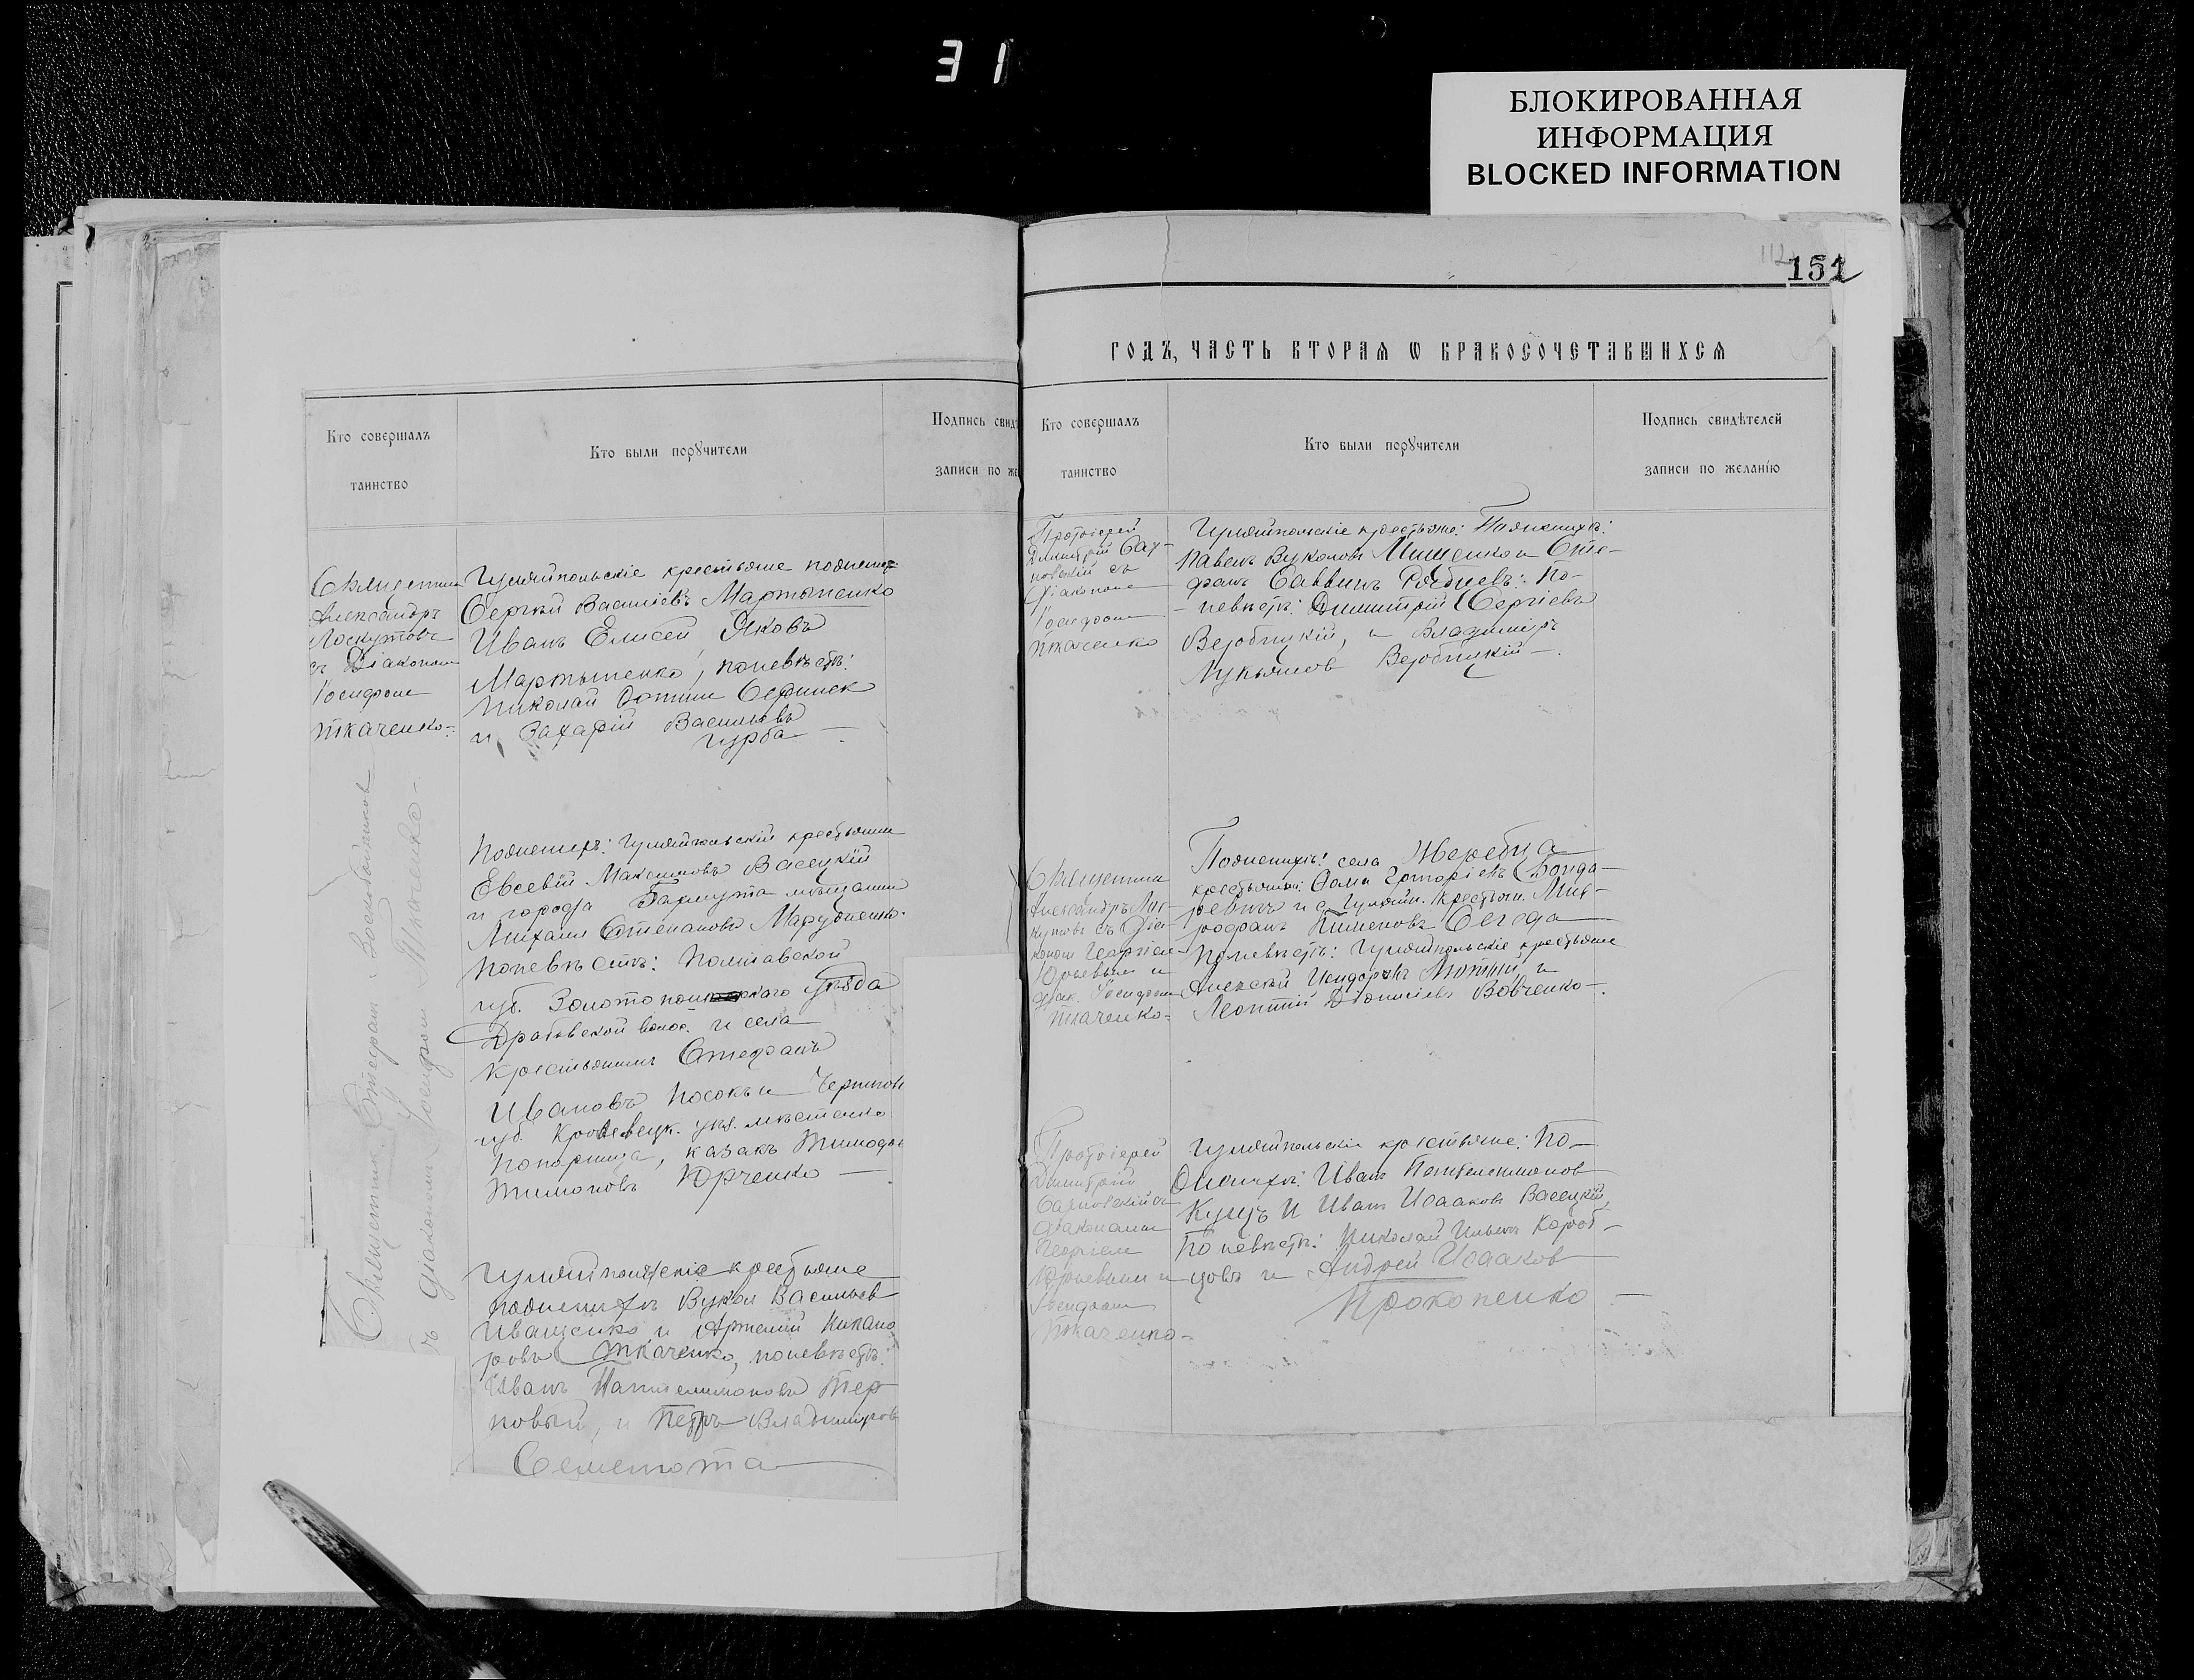 31
БЛОКИРОВАННАЯ
ИНФОРМАЦИЯ
BLOCKED INFORMATION
Кто совершалъ
таинство
Кто были порꙋчители
Подпись свид
записи по же
Священник
Александръ
Лоскутовъ
съ Діаконом
Іосифом
Ткаченко
Гуляйпольскіе крестьяне
Сергѣй Василіевъ Мартыненко
Иванъ Елисей Яковъ
Мартыненко, поневѣстѣ:
Николай
и Захарій Васильевъ
Гурба
Священник Стефан
съ діакономъ Іосифом Ткаченко
Поженихѣ: Гуляйпольскій крестьянин
Евсевій Максимовъ Васецкій
и города Бахмута мѣщанин
Михаил Степановъ
Поневѣстѣ: Полтавской
губ. Золотоно уѣзда
Драбовской волос. и села
крестьянинъ Стефанъ
Ивановъ Носокъ и Чернигов
губ. Кролевецк. уѣз. мѣстечко
казакъ Тимофѣй
Тимоновъ Юрченко
Гуляйпольскіе крестьяне
поженихѣ Вукол Васильев
Иващенко и Артемій Никано
ровъ Ткаченко, поневѣстѣ:
Иванъ Пантелимоновъ Тер
новый, и Петръ Владимиров
Семенота
112
151
ГОДЪ, ЧАСТЬ ВТОРАѦ Ѡ БРАКОСОЧЕТАВШИХСѦ
Кто совершалъ
таинство
Кто были порꙋчители
Подпись свидѣтелей
записи по желанію
Протоіерей
Димитрій
съ
Діаконом
Іосифом
Ткаченко
Гуляйпольскіе крестьяне: Поженихѣ:
Павелъ Вуколовъ Мищенко и Сте-
фанъ Саввинъ Рябцевъ: По-
невѣстѣ: Димитрій Сергіевъ
Веробицкій, и Владиміръ
Лукьянов Веробицкій
Священник
Александръ Лос-
кутовъ съ Діа-
коном Георгіем
Юрьевым и
діак. Іосифом
Ткаченко
Поженихѣ: села Жеребца
крестьянин: Фома Григоріевъ Бонда-
ревъ и с. Гуляйп. крестьян. Мит-
рофанъ Пименовъ Сегеда
Поневѣстѣ: Гуляйпольскіе крестьяне
Алексѣй Исидоровъ Лютый, и
Леонтій Діонисіевъ Вовченко
Протоіерей
Димитрій
діаконами
Георгіем
Юрьевым и
Іосифом
Ткаченко
Гуляйпольскіе крестьяне: По-
женихѣ: Иван Пантелеимонов
Куцъ и Иван Исааковъ Васецкій,
По невѣстѣ: Николай Ильинъ Короб-
цовъ и Андрей Исааков
Прокопенко